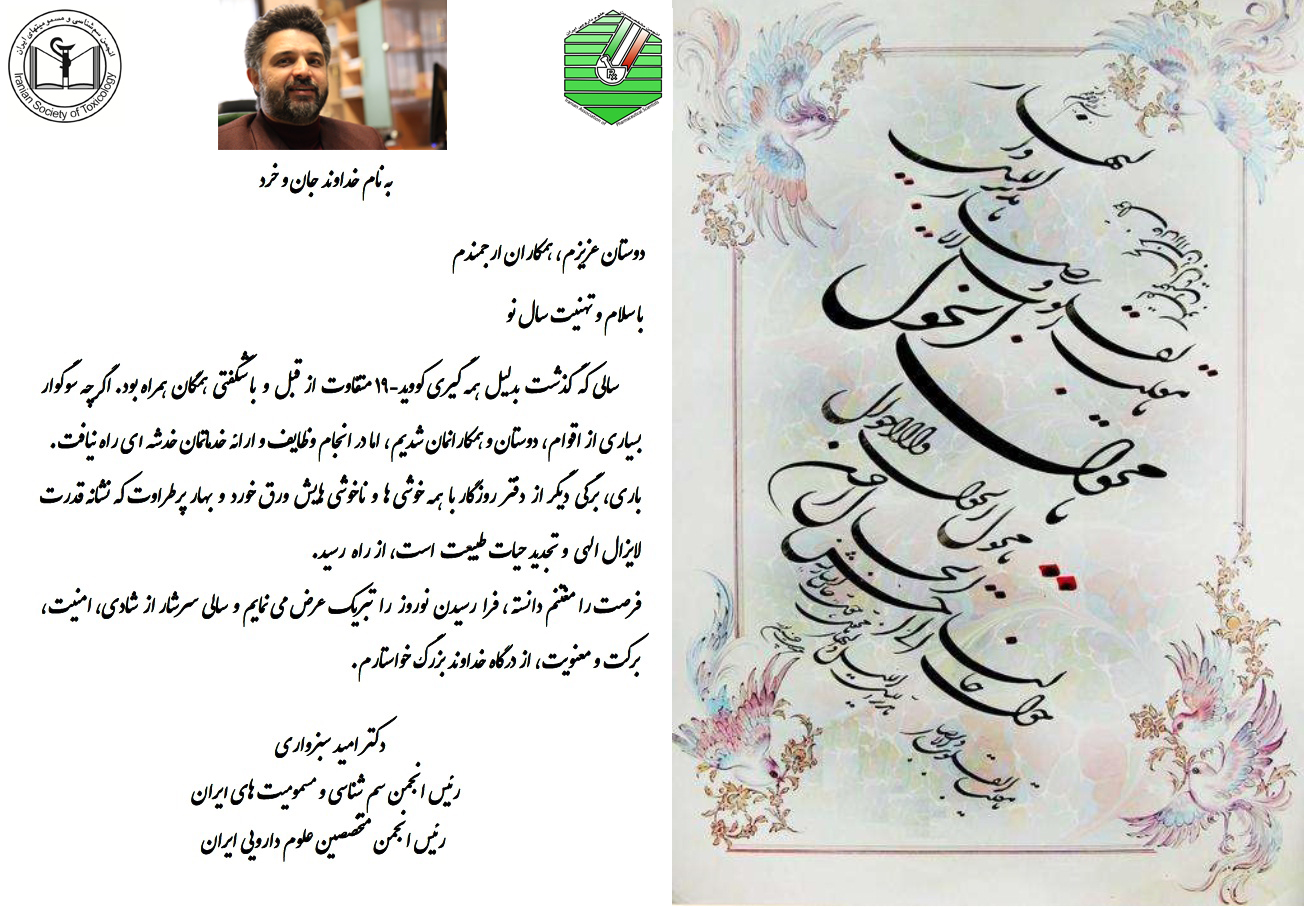 انجمن سم‌شناسی و مسمومیتهای ایران
Iranian Society of Toxicology
Rx
Iranian Association of Pharmaceutical Scientists
به نام خداوند جان و خرد
دوستان عزیزم، همکاران ارجمندم
با سلام و تهنیت سال نو
سالی که گذشت بدلیل همه گیری کووید-۱۹ متفاوت از قبل و با شگفتی همگان همراه بود. اگرچه سوگوار
بسیاری از اقوام، دوستان و همکارانمان شدیم، اما در انجام وظایف و ارائه خدماتمان خدشه ای راه نیافت.
باری، برگی دیگر از دفتر روزگار با همه خوشی ها و ناخوشی هایش ورق خورد و بهار پرطراوت که نشانه قدرت
لایزال الهی و تجدید حیات طبیعت است، از راه رسید.
فرصت را مغتنم دانسته، فرا رسیدن نوروز را تبریک عرض می نمایم و سالی سرشار از شادی، امنیت،
برکت و معنویت، از درگاه خداوند بزرگ خواستارم.
دکتر امید سبزواری
رئیس انجمن سم شناسی و مسمومیت های ایران
رئیس انجمن متخصصین علوم دارویی ایران
یا مقلب القلوب والابصار
یا مدبر اللیل والنهار
یا محول الحول والاحوال
حول حالنا الی احسن الحال